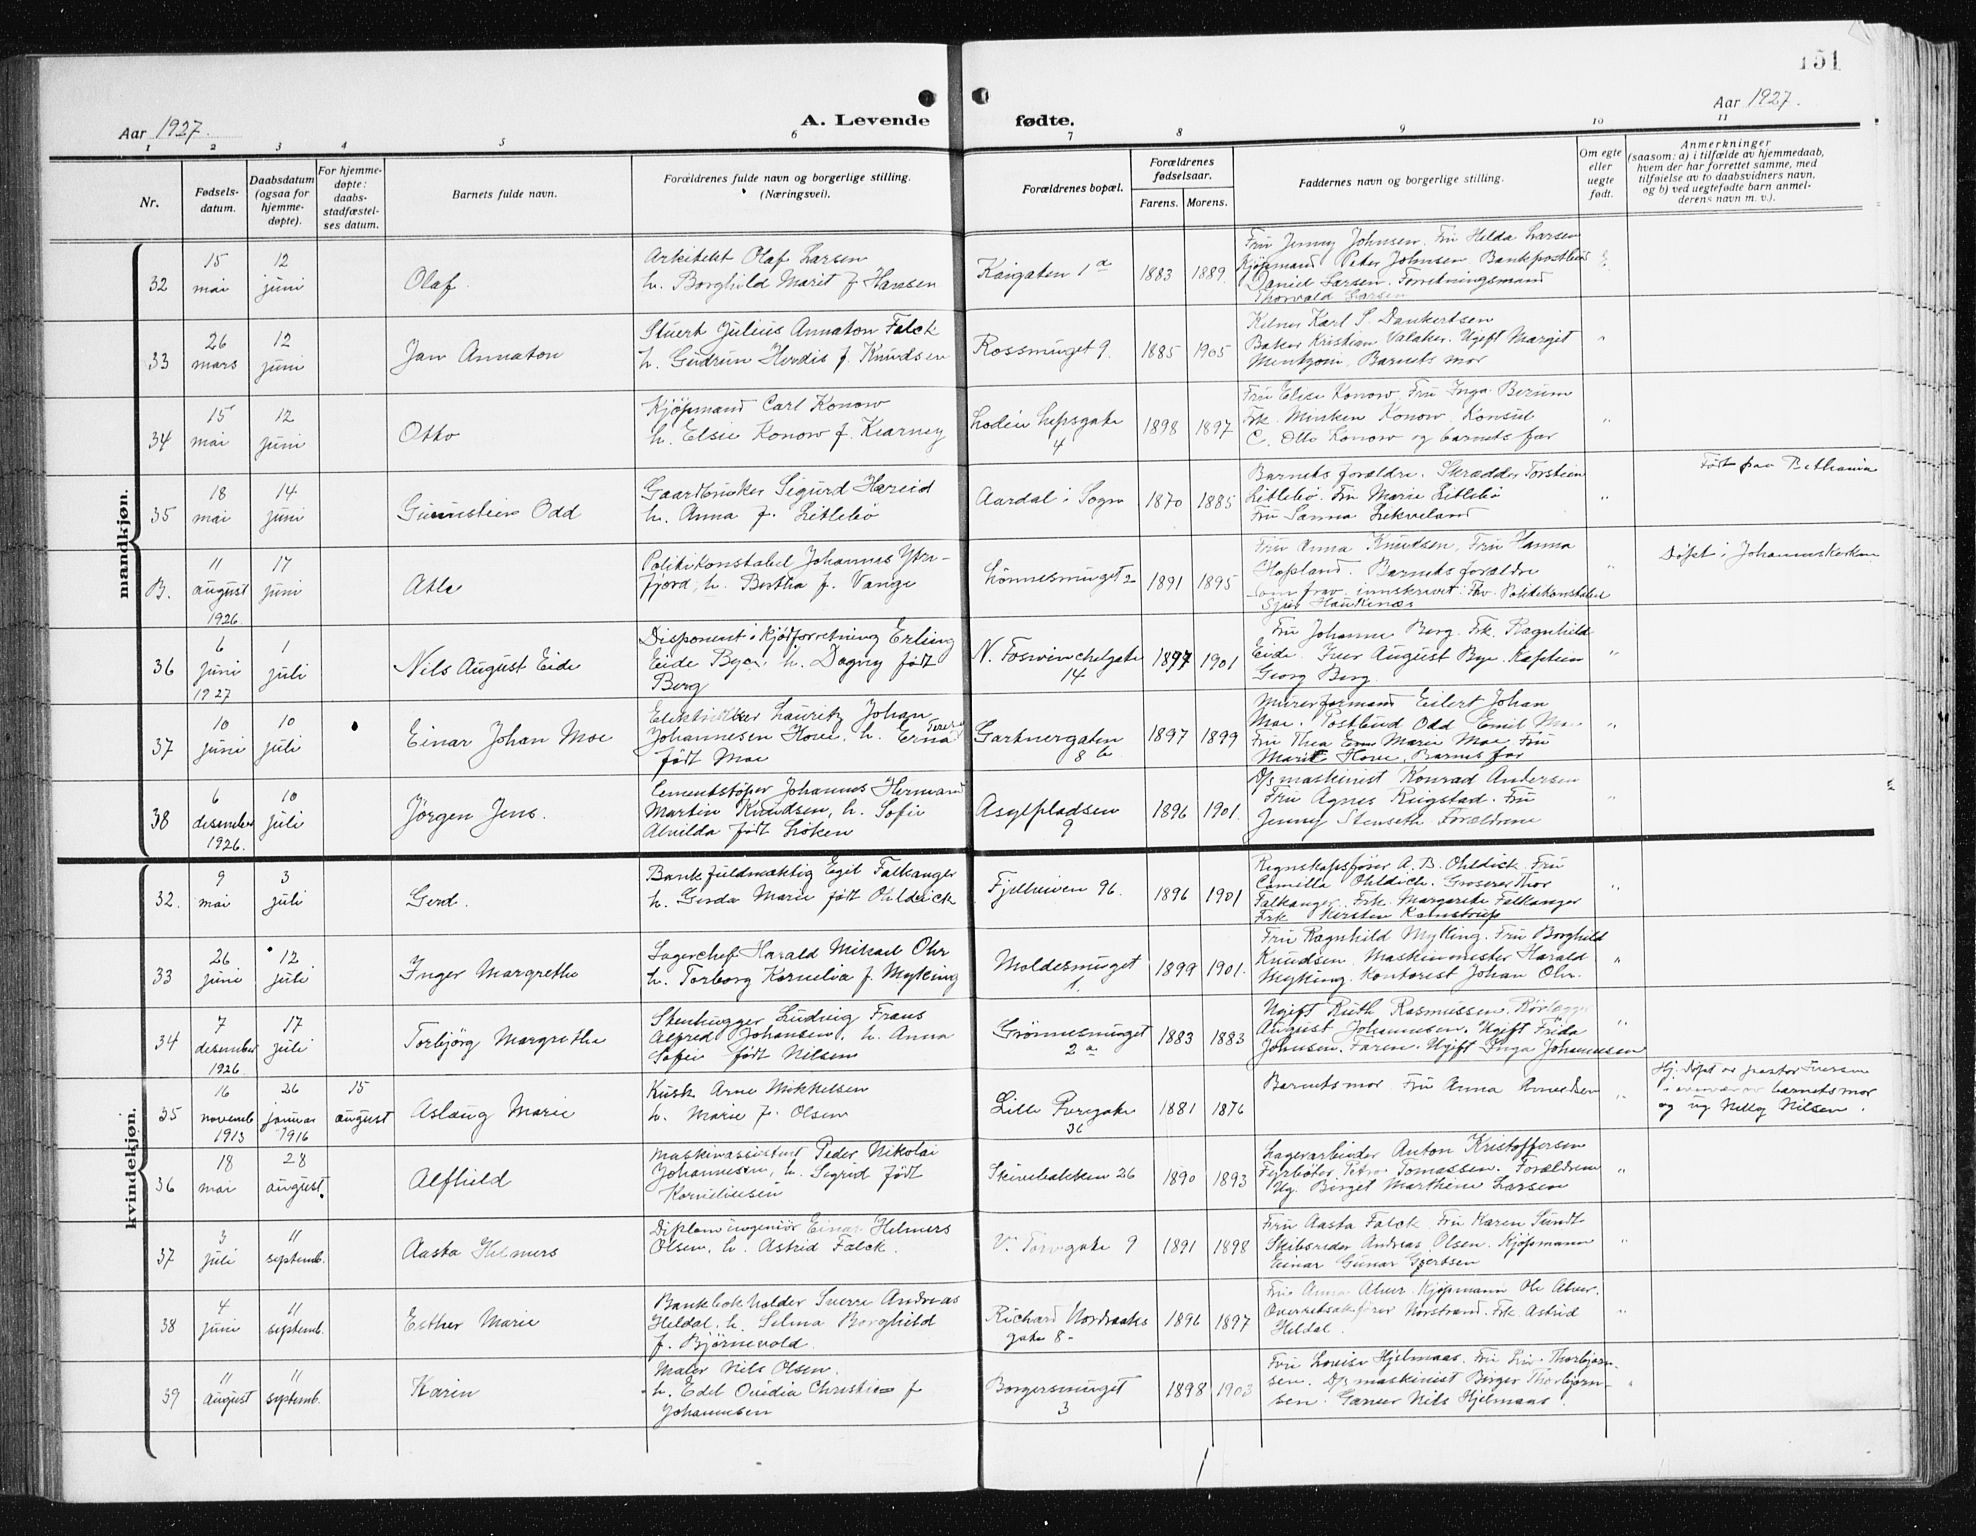 151
Aar 1927.
A. Levende fødte.
Aar 1927.
1 2 3 4 5 6 7 8 9 10 11
Nr.
Fødsels-
datum.
Daabsdatum
(ogsaa for
hjemme-
døpte).
For hjemme-
døpte:
daabs-
stadfæstel-
ses datum.
Barnets fulde navn.
Forældrenes fulde navn og borgerlige stilling.
(Næringsvei).
Forældrenes bopæl.
Forældrenes
fødselsaar.
Farens. Morens.
Faddernes navn og borgerlige stilling.
Om egte
eller
uegte
født.
Anmerkninger
(saasom: a) i tilfælde av hjemmedaab,
hvem der har forrettet samme, med
tilføielse av to daabsvidners navn,
og b) ved uegtefødte barn anmel-
derens navn m. v.).
mandkjøn.
32
15
mai
12
juni
Olaf.
Arkitekt Olaf Larsen
h. Borghild Marit f. Hansen
Kaigaten 1 a
1883 1889.
Fru Jenny Johnsen. Fru Helda Larsen
Kjøpmand Peter Johnsen Bankpostbud
Daniel Larsen. Forretningsmand
Thorvald Larsen
33
26
mars
12
juni
Jan Annaton
Stuert Julius Annaton Falck
h. Gudrun Herdis f. Knudsen
Rossmuget 9.
1885 1905
Kelner Karl S. Dankertsen
Baker Kristian Valaker. Ugift Margit
Mentzoni, Barnets mor
"
34
15
mai
12
juni
Otto
Kjøpmand Carl Konow
h. Elsie Konow f. Kearney
Lodin Lepsgate
4
1898 1897
Fru Elise Konow. Fru Inga Berum
Frk. Minken Konow. Konsul
C. Otto Konow og barnets far
"
35
18
mai
14
juni
Gunnstein Odd
Gaardbruker Sigurd Hareid
h. Anna f. Litlebø
Aardal i Sogn
1870 1885
Barnets forældre. Skrædder Torstein
Litlebø. Fru Marie Litlebø
Fru Sanna Lekveland
"
Født paa Bethania
B.
11
august
1926.
17
juni
Atle
Politikonstabel Johannes Ytre-
fjord, h. Bertha f. Vange
Lønnesmuget 2
1891 1895
Fru Anna Knudsen, Fru Hanna
Hopland. Barnets forældre
som frav. innskrevet: Fru Politikonstabel
Sjur Haukenæs
"
Døpt i Johanneskirken
36
6
juni
1927
1
juli
Nils August Eide
Disponent i kjødforretning Erling
Eide Bye. h. Dagny født
Berg
N. Foswinckelgate
14
1897 1901
Fru Johanne Berg. Frk. Ragnhild
Eide. Iver August Bye. Kaptein
Georg Berg.
"
37
10
juni
10
juli
Einar Johan Moe
Elektriker Lauritz Johan
Johannesen Hove, h. Erna
født Moe
Gartnergaten
8 b
1897 1899
Murerformand Eilert Johan
Moe. Postbud Odd Emil Moe
Fru Thea Marie Moe Fru
Marie Hove, Barnets far
"
38
6
desember
1926.
10
juli
Jørgen Jens.
Cementstøper Johannes Hermand
Martin Knudsen, h. Sofie
Alvilda født Løken
Asylpladsen
9
1896 1901.
D/s maskinist Konrad Andersen
Fru Agnes Rugstad. Fru
Jenny Stenseth Forældrene
"
kvindekjøn.
32.
9
mai
3
juli
Gerd.
Bankfuldmæktig Egil Falkanger
h. Gerda Marie født Ohldick
Fjellveien 96.
1896 1901
Regnskapsfører A. B. Ohldick. Fru
Camilla Ohldick. Grosserer Thor
Falkanger. Frk. Margarethe Falkanger
Frk Kirsten Kamstrup
"
33
26
juni
12
juli
Inger Margrethe
Lagerchef Harald Mikael Ohr
h. Torborg Kornelia f. Myking
Moldesmuget
1.
1899 1901.
Fru Ragnhild Myking. Fru Borghild
Knudsen. Maskinmester Harald
Myking. Kontorist Johan Ohr.
"
34
7
desember
1926
17
juli
Torbjørg Margrethe
Stenhugger Ludvig Frans
Alfred Johansen, h. Anna
Sofie født Nilsen
Grønnesmuget
2 a
1883 1883
Ugift Ruth Rasmussen, Rørlægger
August Johannesen. Ugift Frida
Johnsen. Faren. Ugift Inga Johannesen
"
35
16
novemb
1913
26
januar
1916
15
august
Aslaug Marie
Kusk Arne Mikkelsen
h. Marie f. Olsen
Lille Øvregate
36
1881 1876
Barnets mor Fru Anna
"
Hj. døpt av pastor Iversen
i nærvær av barnets mor
og ug Nelly Nilsen.
36
18
mai
28
august.
Alfhild
Maskinassistent Peder Nikolai
Johannesen, h. Sigrid født
Korneliussen
Skivebakken 26
1890 1893
Lagerarbeider Anton Kristoffersen
Fyrbøter Petra Tomassen. Forældrene
Ug. Birget Marthine Larsen
"
37
3
juli
11
septemb.
Aasta Helmers
Diplomingeniør Einar Helmers
Olsen, h. Astrid Falck.
V. Torvgate 9
1891 1898
Fru Aasta Falck. Fru Karen Sundt
Skibsreder Andreas Olsen. Kjøpmann
Einar Gunar Gjertsen
"
38
4
juni
11
septemb.
Esther Marie
Bankbokholder Sverre Andreas
Heldal. h. Selma Borghild
f. Bjørnevold.
Richard Nordraaks
gate 8-
1896 1897
Fru Anna Alver. Kjøpmann Ole Alver.
Overretssakfører Norstrand. Frk Astrid
Heldal.
"
39
11
august
11
septemb.
Karin
Maler Nils Olsen.
h. Edel Ovidia Christine f
Johannesen
Borgersmuget
3
1898 1903
Fru Lovise Hjelmaas. Fru Liv Thorbjørn-
sen. D/s maskinist Birger Thorbjørn-
sen. Garver Nils Hjelmaas.
"